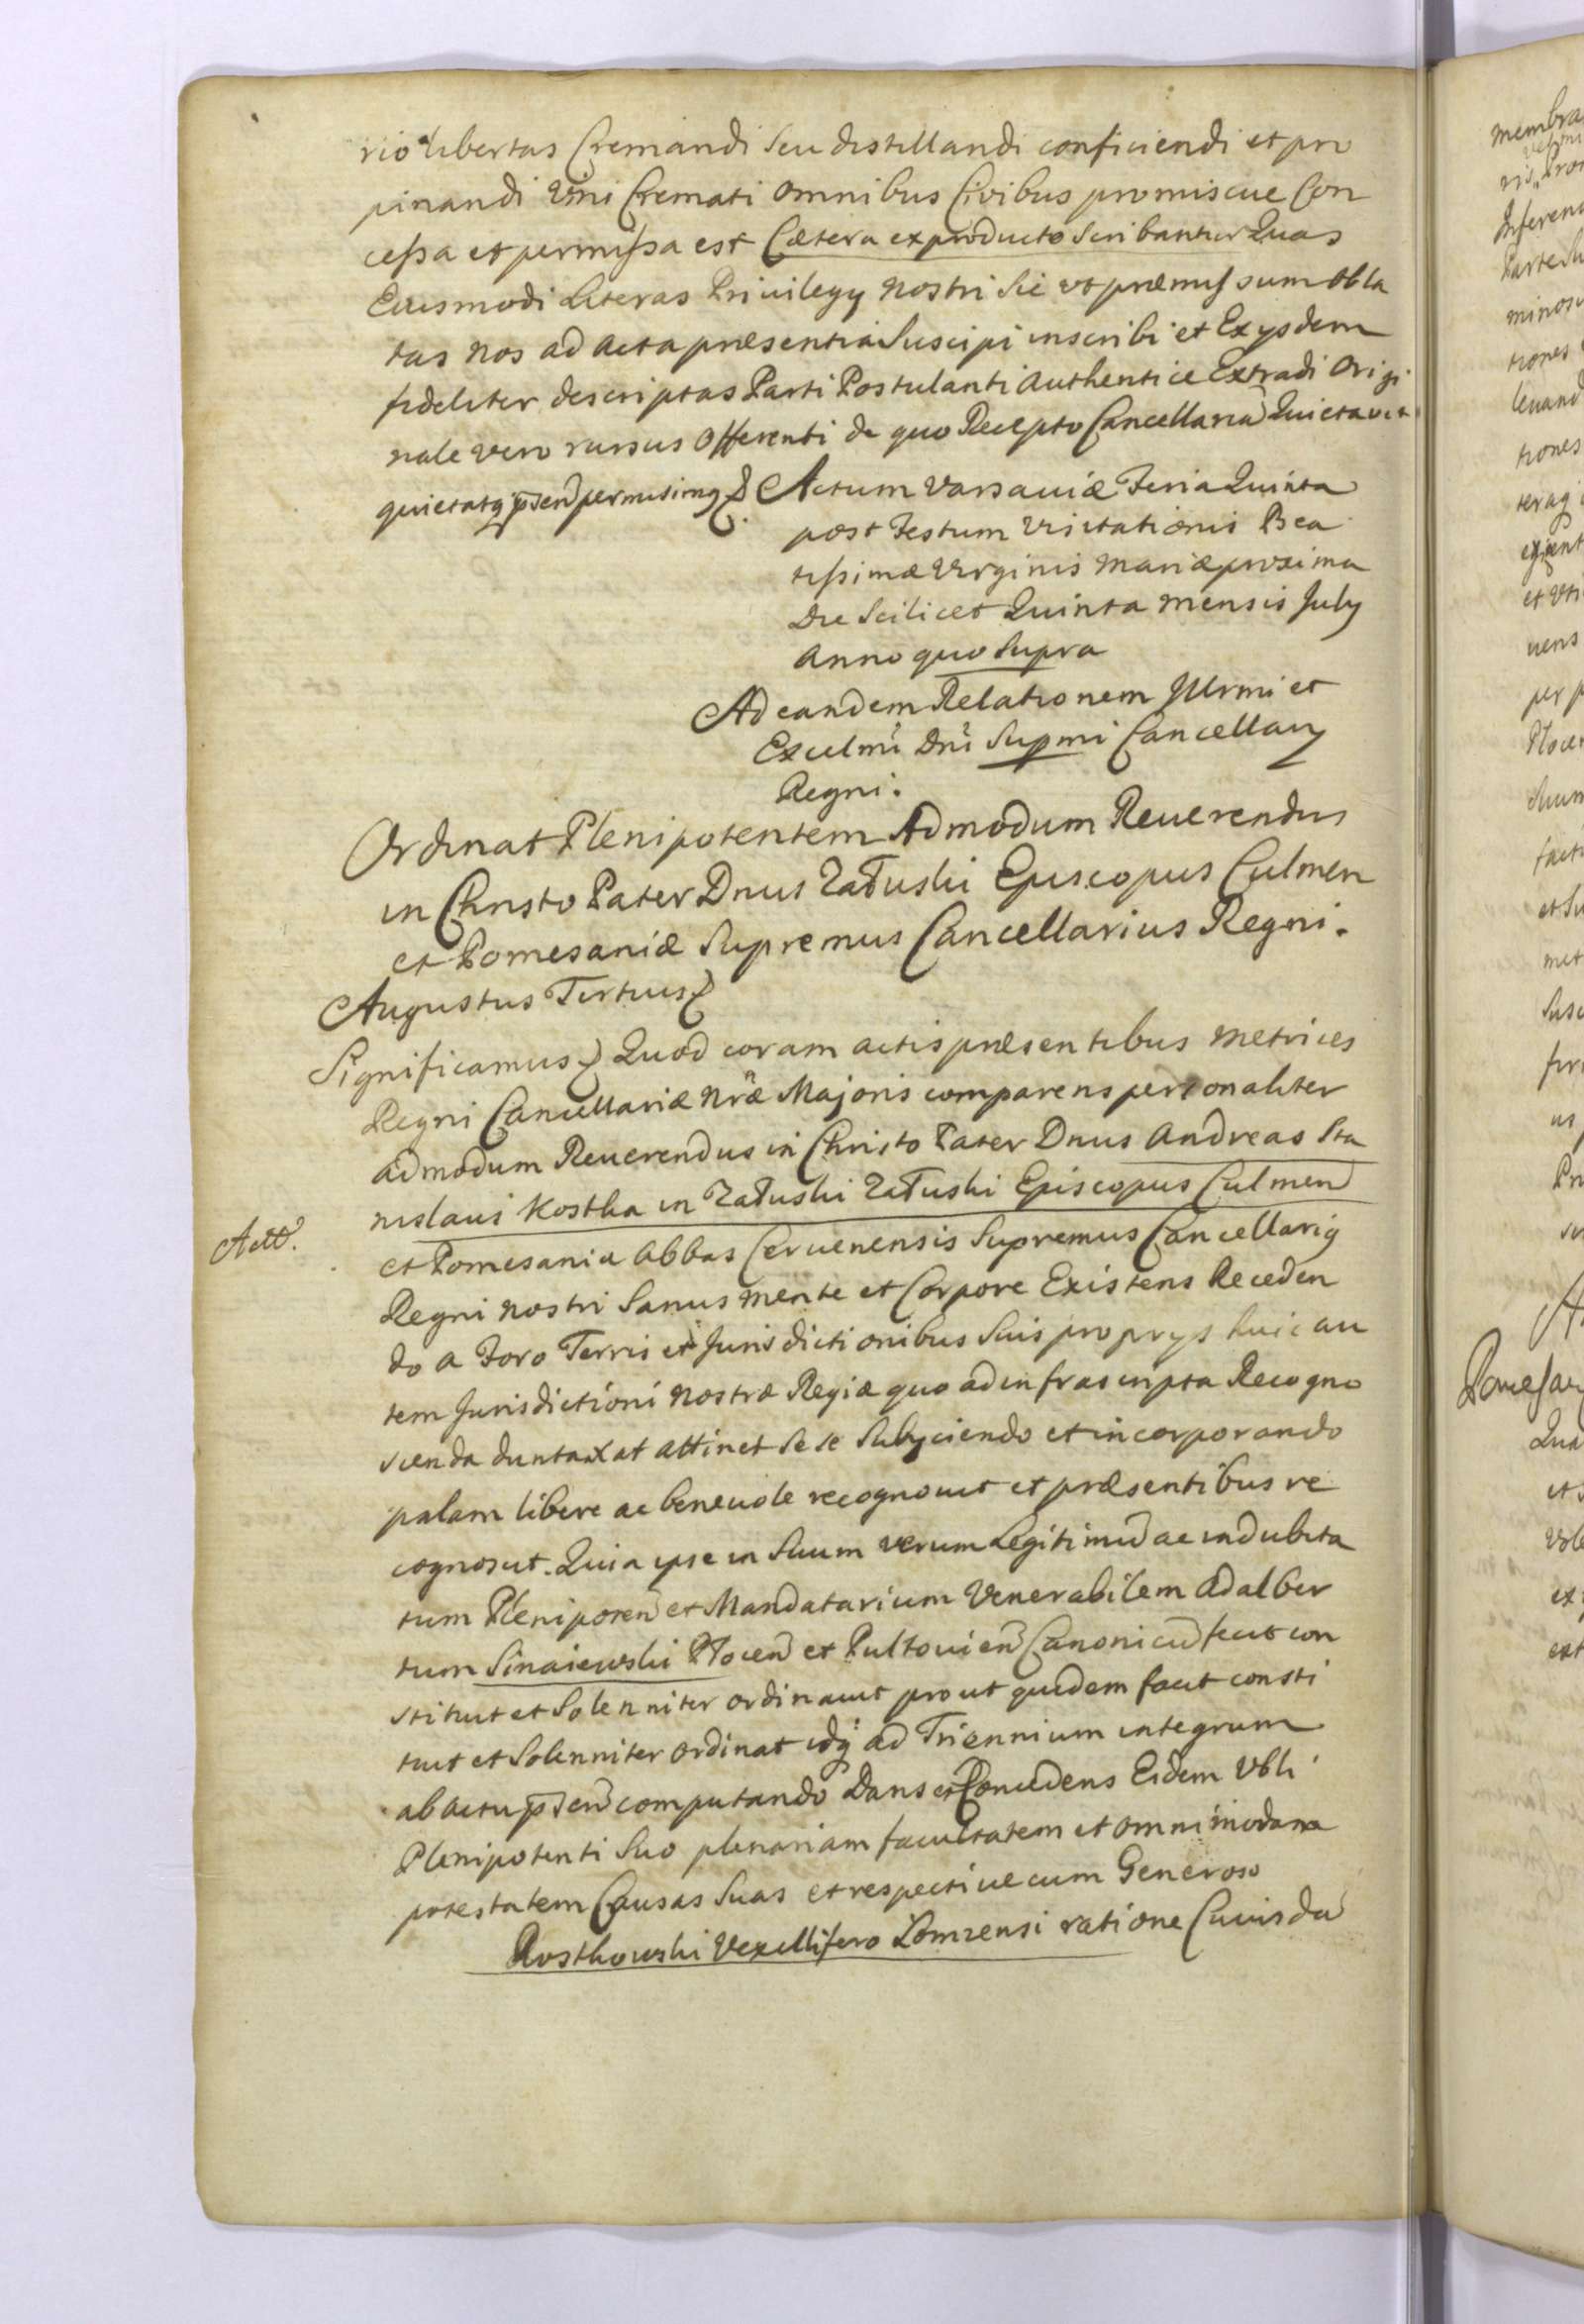 rio libertas Cremandi seu distillandi conficiendi et pro
pinandi Vini Cremati omnibus Civibus promiscue Con
cessa et permissa est Cætera ex producto scribantur Quas
Eiusmodi Literas Privilegy nostri Sic ut præmissum obla
tas nos ad Acta præsentia Suscipi inscribi et Exysdem
fideliter descriptas Parti Postulanti authentice Extradi Origi
nale vero rursus Offerenti de quo Recepto Cancellariã Quietavit
quietatq p̃sen permisimq Actum Varsaviæ Feria Quinta
post Festum Visitationis Bea
tissimæ Virginis Mariæ proxima
Die Scilicet Quinta mensis July
Anno quo Supra
Ad eandem Relationem Illrmi et
Excelmi Dni Supmi Cancellary
Regni.
Ordinat Plenipotentem Admodum Reverendus
in Christo Pater Dnus Załuski Episcopus Culmen
et Pomesaniæ Supremus Cancellarius Regni.
Augustus Tertius
Significamus Quod coram actis præsentibus Metrices
Regni Cancellariæ Nræ Majoris comparens personaliter
admodum Reverendus in Christo Pater Dnus Andreas Sta
nislaus Kostka in Załuski Załuski Episcopus Culmen
Actt.
et Pomesaniæ Abbas Cervenensis Supremus Cancellariq
Regni nostri Sanus mente et Corpore Existens Receden
do a Foro Terris et Jurisdictionibus Suis proprys huic au
tem Jurisdictioni nostræ Regiæ quo ad infrascripta Recogno
scenda duntaxat attinet Se se Subyciendo et incorporando
palam libere ac benevole recognovit et præsentibus re
cognoscit. Quia ipse in Suum verum Legitimũ ac indubita
tum Plenipoten et Mandatarium Venerabilem Adalber
tum Sinaiewski Płocen et Pultovien Canonicũ fecit con
stituit et Solenniter ordinavit prout quidem facit consti
tuit et Solenniter ordinat idq ad Triennium integrum
ab actu p̃sen computando Dans et Concedens Eidem Vbli
Plenipotenti Suo plenariam facultatem et omnimodam
potestatem Causas Suas et respective cum Generoso
Rostkowski Vexillifero Łomzensi ratione Cuiusda